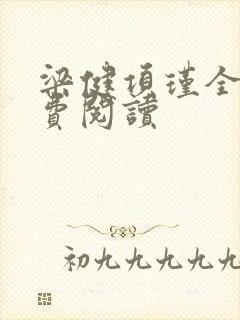 梁健項瑾全
費閱讀
初九九九九九